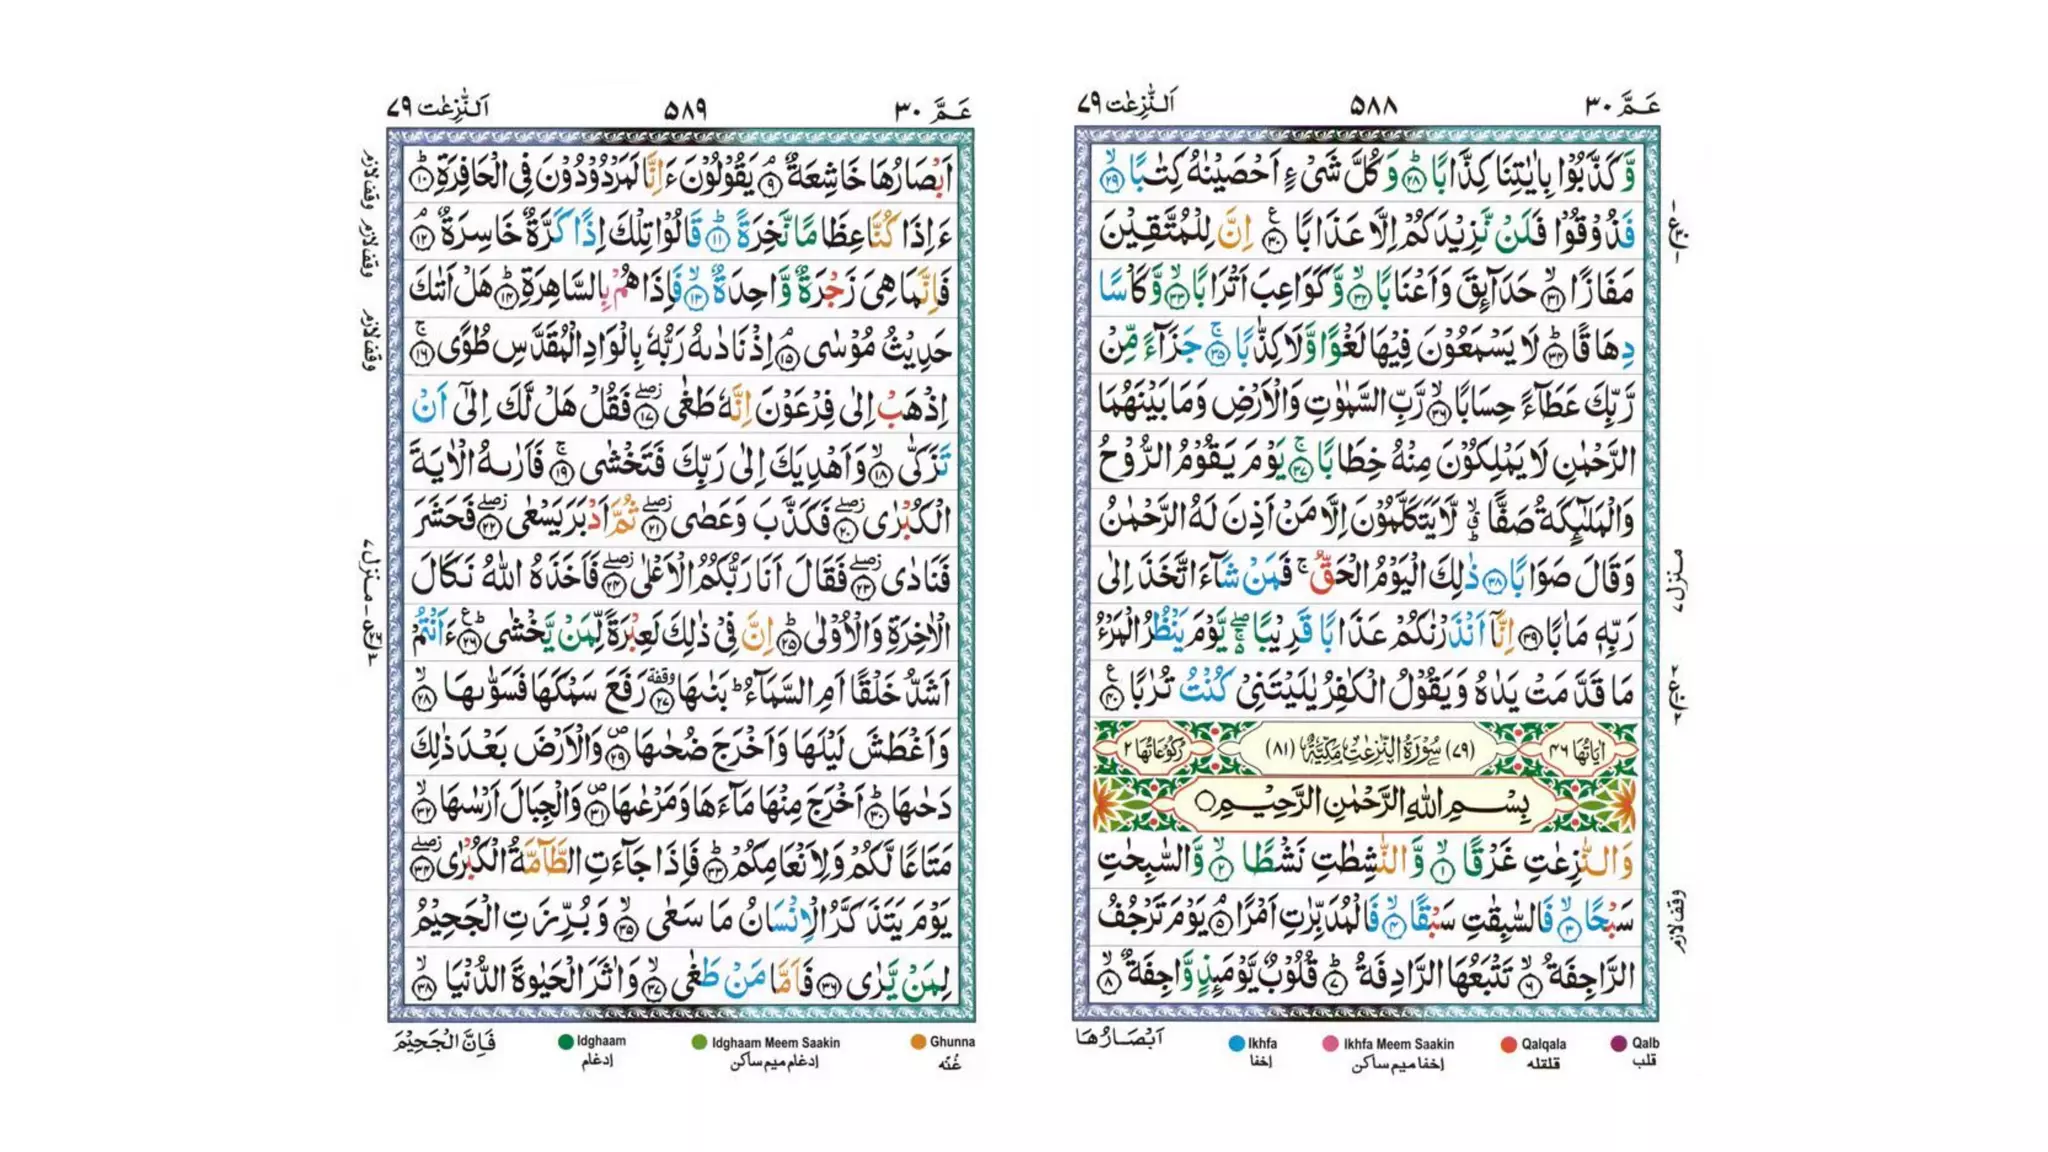 عَمَّ ٣٠
٥٨٨
اَلنّٰزِعٰت ٧٩
وَّكَذَّبُوْا بِاٰيٰتِنَا كِذَّابًا ؕ‏﴿۲۸﴾ وَكُلَّ شَىْءٍ اَحْصَيْنٰهُ كِتٰبًا ۙ‏﴿۲۹﴾
فَذُوْقُوْا فَلَنْ نَّزِيْدَكُمْ اِلَّا عَذَابًا ‏﴿۳۰﴾ اِنَّ لِلْمُتَّقِيْنَ
مَفَازًا ۙ‏﴿۳۱﴾ حَدَآئِقَ وَاَعْنَابًا ۙ‏﴿۳۲﴾ وَّكَوَاعِبَ اَتْرَابًا ۙ‏﴿۳۳﴾ وَّكَاْسًا
دِهَاقًا ؕ‏﴿۳۴﴾ لَا يَسْمَعُوْنَ فِيْهَا لَغْوًا وَّلَا كِذّٰبًا ۚ‏﴿۳۵﴾ جَزَآءً مِّنْ
رَّبِّكَ عَطَآءً حِسَابًا ۙ‏﴿۳۶﴾ رَّبِّ السَّمٰوٰتِ وَالْاَرْضِ وَمَا بَيْنَهُمَا
الرَّحْمٰنِ لَا يَمْلِكُوْنَ مِنْهُ خِطَابًا ۚ‏﴿۳۷﴾ يَوْمَ يَقُوْمُ الرُّوْحُ
وَالْمَلٰٓئِكَةُ صَفًّا ۙؕ لَّا يَتَكَلَّمُوْنَ اِلَّا مَنْ اَذِنَ لَهُ الرَّحْمٰنُ
وَقَالَ صَوَابًا ‏﴿۳۸﴾ ذٰلِكَ الْيَوْمُ الْحَقُّ ۚ فَمَنْ شَآءَ اتَّخَذَ اِلٰى
رَبِّهٖ مَاٰبًا ‏﴿۳۹﴾ اِنَّاۤ اَنْذَرْنٰكُمْ عَذَابًا قَرِيْبًا ۖۚ يَّوْمَ يَنْظُرُ الْمَرْءُ
مَا قَدَّمَتْ يَدٰهُ وَيَقُوْلُ الْكٰفِرُ يٰلَيْتَنِىْ كُنْتُ تُرٰبًا ‏﴿۴۰﴾
اٰيَاتُهَا ٤٦ (٧٩) سُوْرَةُ النّٰزِعٰتِ مَكِّيَّةٌ (٨١) رُكُوْعَاتُهَا ٢
بِسْمِ اللّٰهِ الرَّحْمٰنِ الرَّحِيْمِ
وَالنّٰزِعٰتِ غَرْقًا ۙ‏﴿۱﴾ وَّالنّٰشِطٰتِ نَشْطًا ۙ‏﴿۲﴾ وَّالسّٰبِحٰتِ
سَبْحًا ۙ‏﴿۳﴾ فَالسّٰبِقٰتِ سَبْقًا ۙ‏﴿۴﴾ فَالْمُدَبِّرٰتِ اَمْرًا ۘ‏﴿۵﴾ يَوْمَ تَرْجُفُ
الرَّاجِفَةُ ۙ‏﴿۶﴾ تَتْبَعُهَا الرَّادِفَةُ ؕ‏﴿۷﴾ قُلُوْبٌ يَّوْمَئِذٍ وَّاجِفَةٌ ۙ‏﴿۸﴾
منزل ٧
وقف لازم
اَبْصَارُهَا
Ikhfa
اِخفا
Ikhfa Meem Saakin
اِخفا میم ساکن
Qalqala
قلقلہ
Qalb
قلب
عَمَّ ٣٠
٥٨٩
اَلنّٰزِعٰت ٧٩
اَبْصَارُهَا خَاشِعَةٌ ۘ‏﴿۹﴾ يَقُوْلُوْنَ ءَاِنَّا لَمَرْدُوْدُوْنَ فِى الْحَافِرَةِ ؕ‏﴿۱۰﴾
ءَاِذَا كُنَّا عِظَامًا نَّخِرَةً ؕ‏﴿۱۱﴾ قَالُوْا تِلْكَ اِذًا كَرَّةٌ خَاسِرَةٌ ۘ‏﴿۱۲﴾
فَاِنَّمَا هِىَ زَجْرَةٌ وَّاحِدَةٌ ۙ‏﴿۱۳﴾ فَاِذَا هُمْ بِالسَّاهِرَةِ ؕ‏﴿۱۴﴾ هَلْ اَتٰٮكَ
حَدِيْثُ مُوْسٰى ۘ‏﴿۱۵﴾ اِذْ نَادٰٮهُ رَبُّهٗ بِالْوَادِ الْمُقَدَّسِ طُوًى ۚ‏﴿۱۶﴾
اِذْهَبْ اِلٰى فِرْعَوْنَ اِنَّهٗ طَغٰى ۖ‏﴿۱۷﴾ فَقُلْ هَلْ لَّكَ اِلٰٓى اَنْ
تَزَكّٰى ۙ‏﴿۱۸﴾ وَاَهْدِيَكَ اِلٰى رَبِّكَ فَتَخْشٰى ۚ‏﴿۱۹﴾ فَاَرٰٮهُ الْاٰيَةَ
الْكُبْرٰى ۖ‏﴿۲۰﴾ فَكَذَّبَ وَعَصٰى ۖ‏﴿۲۱﴾ ثُمَّ اَدْبَرَ يَسْعٰى ۖ‏﴿۲۲﴾ فَحَشَرَ
فَنَادٰى ۖ‏﴿۲۳﴾ فَقَالَ اَنَا رَبُّكُمُ الْاَعْلٰى ۖ‏﴿۲۴﴾ فَاَخَذَهُ اللّٰهُ نَكَالَ
الْاٰخِرَةِ وَالْاُوْلٰى ؕ‏﴿۲۵﴾ اِنَّ فِىْ ذٰلِكَ لَعِبْرَةً لِّمَنْ يَّخْشٰى ؕ‏﴿۲۶﴾ ءَاَنْتُمْ
اَشَدُّ خَلْقًا اَمِ السَّمَآءُ ؕ بَنٰٮهَا ‏﴿۲۷﴾ رَفَعَ سَمْكَهَا فَسَوّٰٮهَا ۙ‏﴿۲۸﴾
وَاَغْطَشَ لَيْلَهَا وَاَخْرَجَ ضُحٰٮهَا ‏﴿۲۹﴾ وَالْاَرْضَ بَعْدَ ذٰلِكَ
دَحٰٮهَا ؕ‏﴿۳۰﴾ اَخْرَجَ مِنْهَا مَآءَهَا وَمَرْعٰٮهَا ‏﴿۳۱﴾ وَالْجِبَالَ اَرْسٰٮهَا ۙ‏﴿۳۲﴾
مَتَاعًا لَّكُمْ وَلِاَنْعَامِكُمْ ؕ‏﴿۳۳﴾ فَاِذَا جَآءَتِ الطَّآمَّةُ الْكُبْرٰى ۖ‏﴿۳۴﴾
يَوْمَ يَتَذَكَّرُ الْاِنْسَانُ مَا سَعٰى ۙ‏﴿۳۵﴾ وَبُرِّزَتِ الْجَحِيْمُ
لِمَنْ يَّرٰى ‏﴿۳۶﴾ فَاَمَّا مَنْ طَغٰى ۙ‏﴿۳۷﴾ وَاٰثَرَ الْحَيٰوةَ الدُّنْيَا ۙ‏﴿۳۸﴾
وقف لازم
وقف لازم
وقف لازم
منزل ٧
فَاِنَّ الْجَحِيْمَ
Idghaam
اِدغام
Idghaam Meem Saakin
اِدغام میم ساکن
Ghunna
غُنّہ